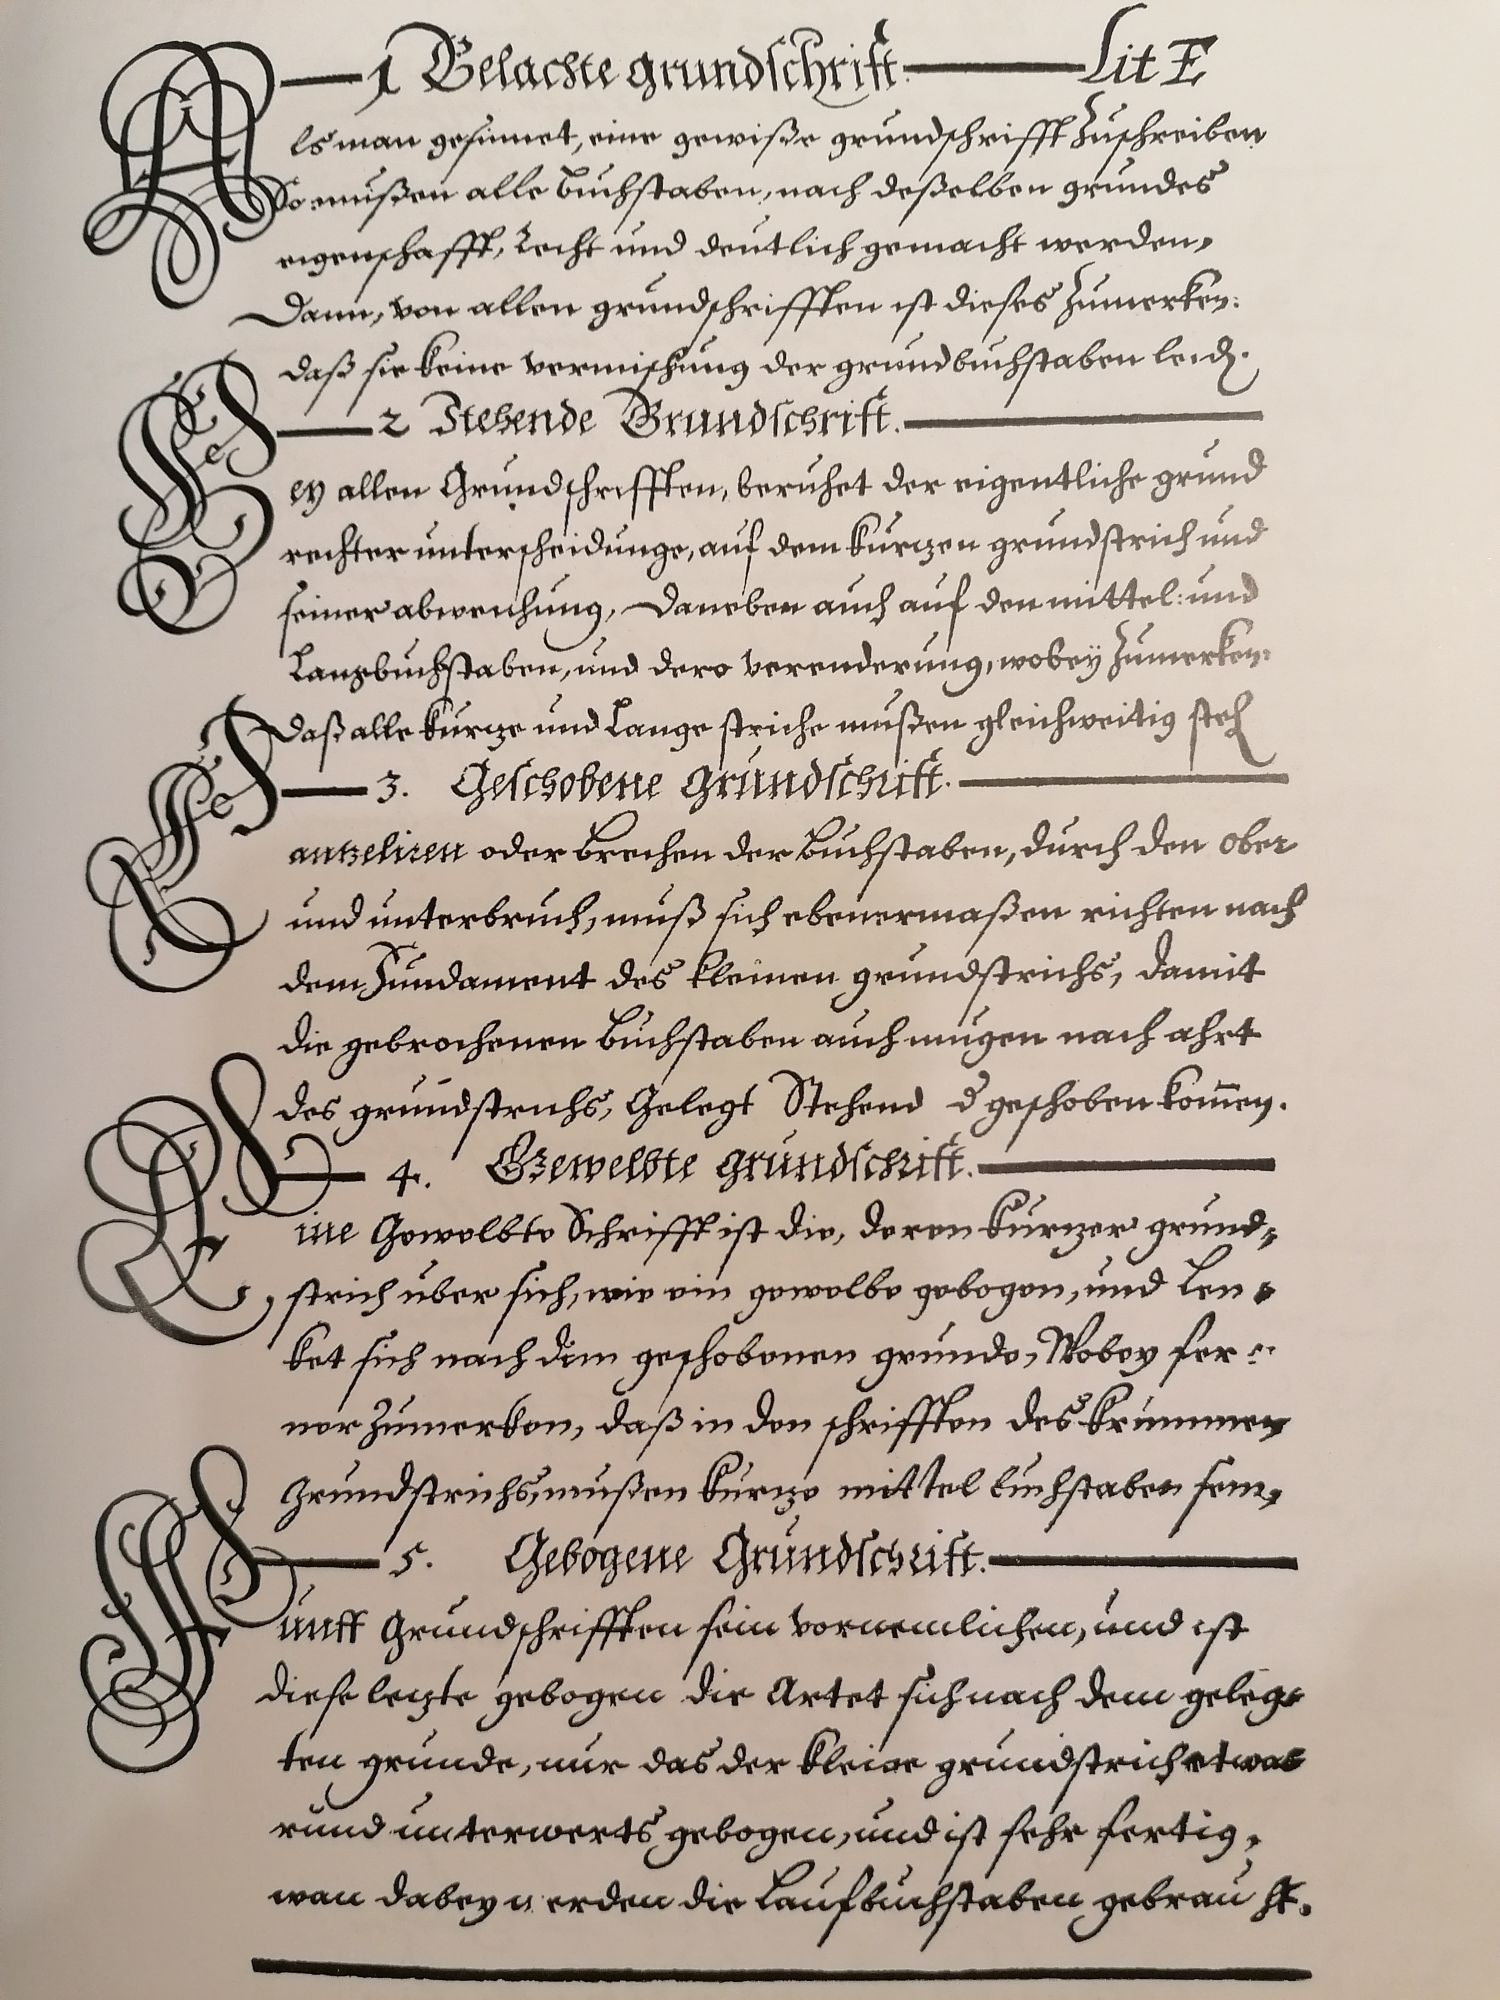 1 Gelachte grundschrift. Lit E
Als man gesinnet, eine gewiße grundschrifft Zuschreiben
So mußen alle buchstaben, nach deßelben grundes
eigenschafft, Recht und deutlich gemacht werden,
Dann, von allen grundschrifften ist dieses Zumerken:
daß sie keine vermischung der grundbuchstaben leid.
2 Stehende Grundschrift.
Bey allen Grundschrifften, beruhet der eigentliche grund
rechter unterscheidunge, auf dem kurzen grundstrich und
seiner abweichung, Daneben auch auf den mittel: und
Langbuchstaben, und dero verenderung, wobey Zumerken:
Daß alle kurze und Lange striche mußen gleichweitig steh
3. Geschobene grundschrift.
Cantzeliren oder Brechen der Buchstaben, durch den ober
und unterbruch, muß sich ebenermaßen richten nach
dem Fundament des kleinen grundstrichs, damit
die gebrochenen Buchstaben auch mugen nach ahrt
des grundstrichs, Gelegt Stehend geschoben kom̄en.
4. Gewelbte grundschrift.
Eine Gewelbte Schrifft ist die, deren kurzer grund,
strich uber sich, wie ein gewelbe gebogen, und Len,
ket sich nach dem geschobenen grunde, Wobey fer:
ner Zumerken, daß in den schrifften des krummen
grundstrichs, mußen kurze mittel buchstaben sein,
5. Gebogene Grundschrift.
Funff Grundschrifften sein vornemlichen, und ist
diese letzte gebogen die Artet sich nach dem geleg,
ten grunde, nur das der kleine grundstrich etwas
rund unterwerts gebogen, und ist sehr fertig,
wan dabey werden die Laufbuchstaben gebraucht.